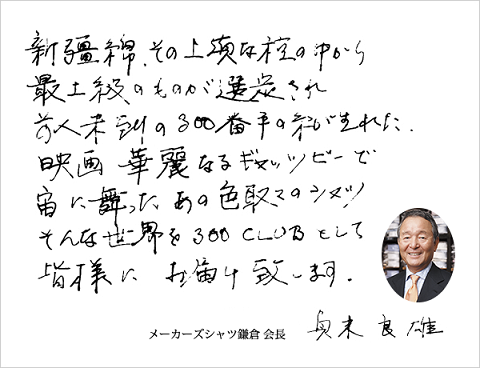 新疆綿、その上質な桎の中から
最上級のものが選定され
前人未到の300番手の糸が生れた。
映画 華麗なるギャッツビーで
宙に舞った あの色取々のシャツ
そんな世界を 300 CLUB として
皆様に お届け 致します。
メーカーズシャツ鎌倉 会長
貞末 良雄